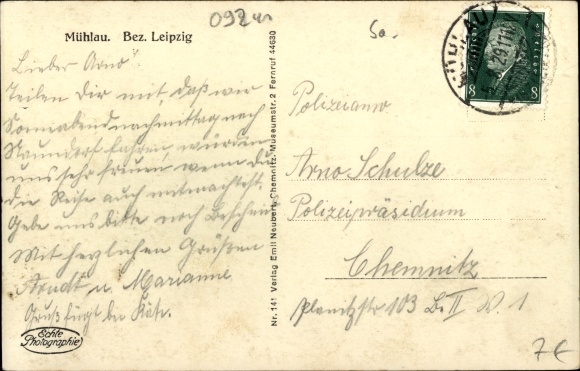 092 un
So.
Mühlau. Bez. Leipzig
Lieber Arno!
Teilen Dir mit, daß wir
Sonnabend nachmittag nach
Naundorf fahren, würden
uns sehr freuen, wenn Du
die Reise auch mitmachtest.
Gebe uns bitte noch Bescheid.
Mit herzlichen Grüßen
Arndt u. Marianne
Gruß fügt bei Käte.
Echte
Photographie
Nr. 141 Verlag Emil Neubert, Chemnitz, Museumstr. 2 Fernruf 44630
8 8
Arno Schulze
Polizeipräsidium
Chemnitz
Planitzstr 103 II W. 1
7€